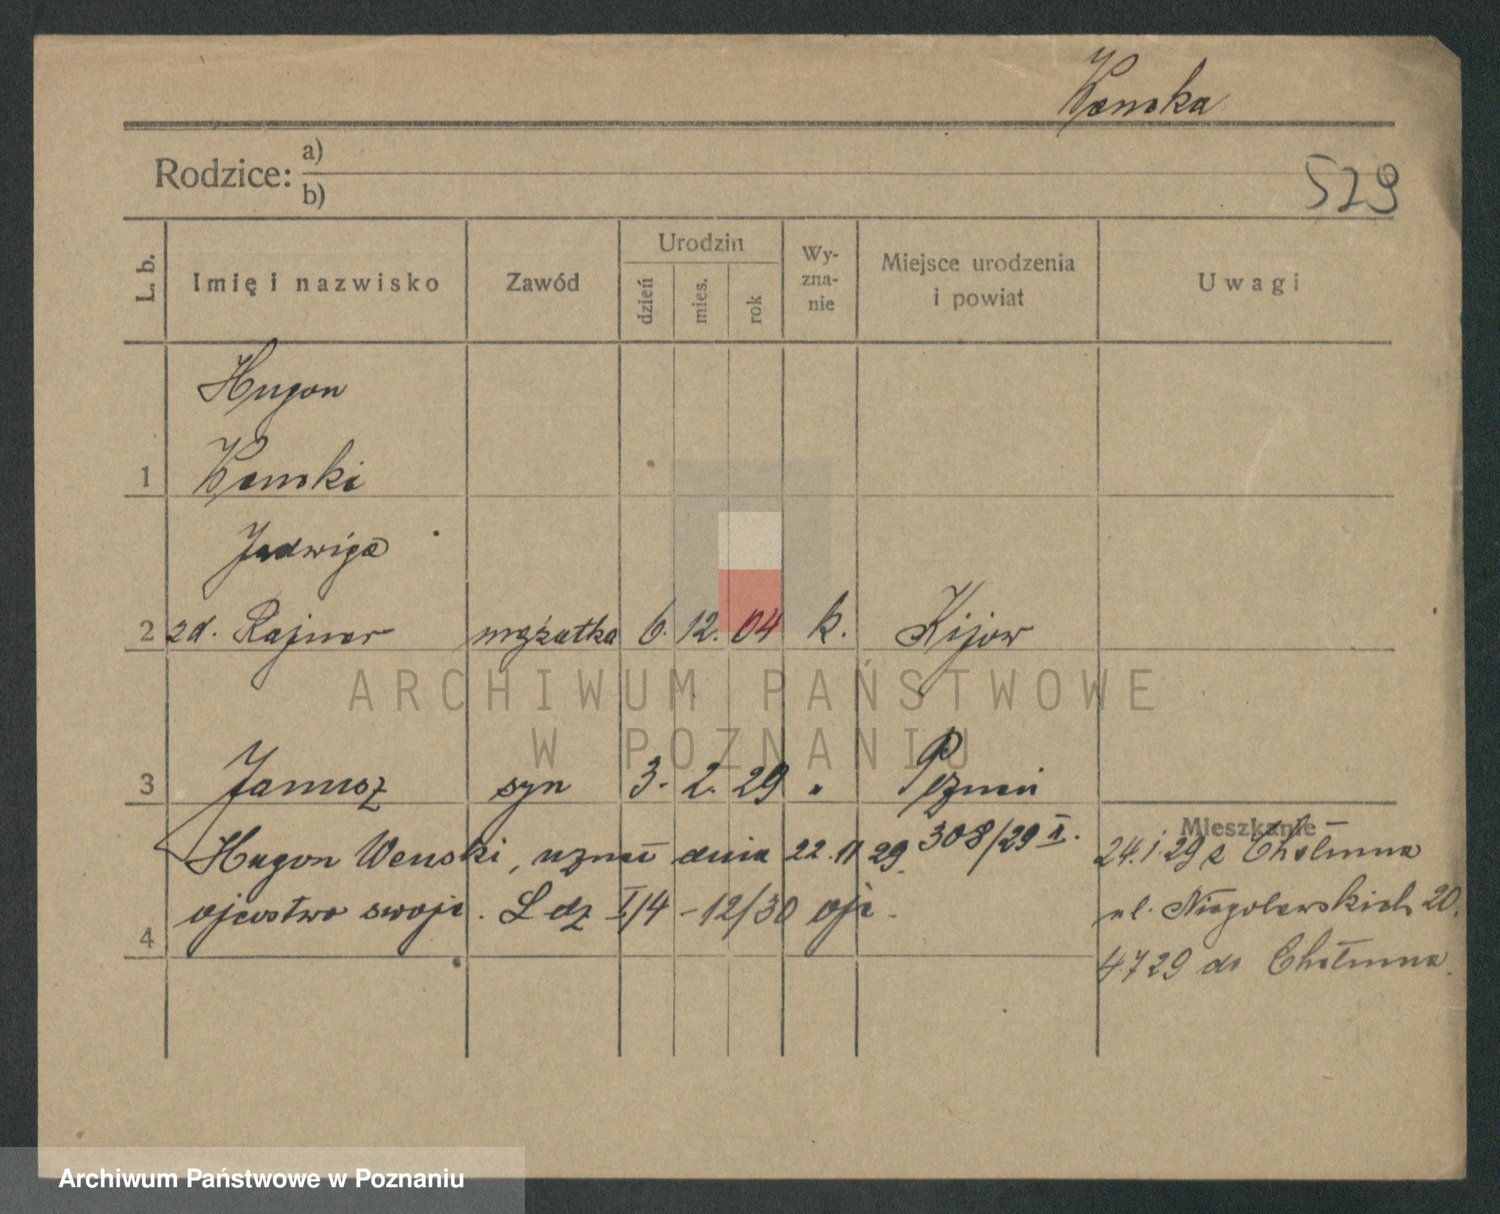 Wenska
Rodzice: a)
b)
529
L. b.
Imię i nazwisko
Zawód
Urodzin
dzień
mies.
rok
Wy-
zna-
nie
Miejsce urodzenia
i powiat
Uwagi
Hugon
1 Wenski
Jadwiga
2 zd. Rajner mężatka 6. 12. 04 k. Kijow
ARCHIWUM PAŃSTWOWE
W POZNANIU
3 Janusz syn 3. 2. 29 " Pznań
308/29 II.
Mieszkanie
Hugon Wenski, uznał dnia 22.11 29.
ojcostwo swoje. L dz I/4 - 12/30
4
24.1.29 z Chełmna
ul. Niegolewskich 20.
4729 do Chełmna.
Archiwum Państwowe w Poznaniu